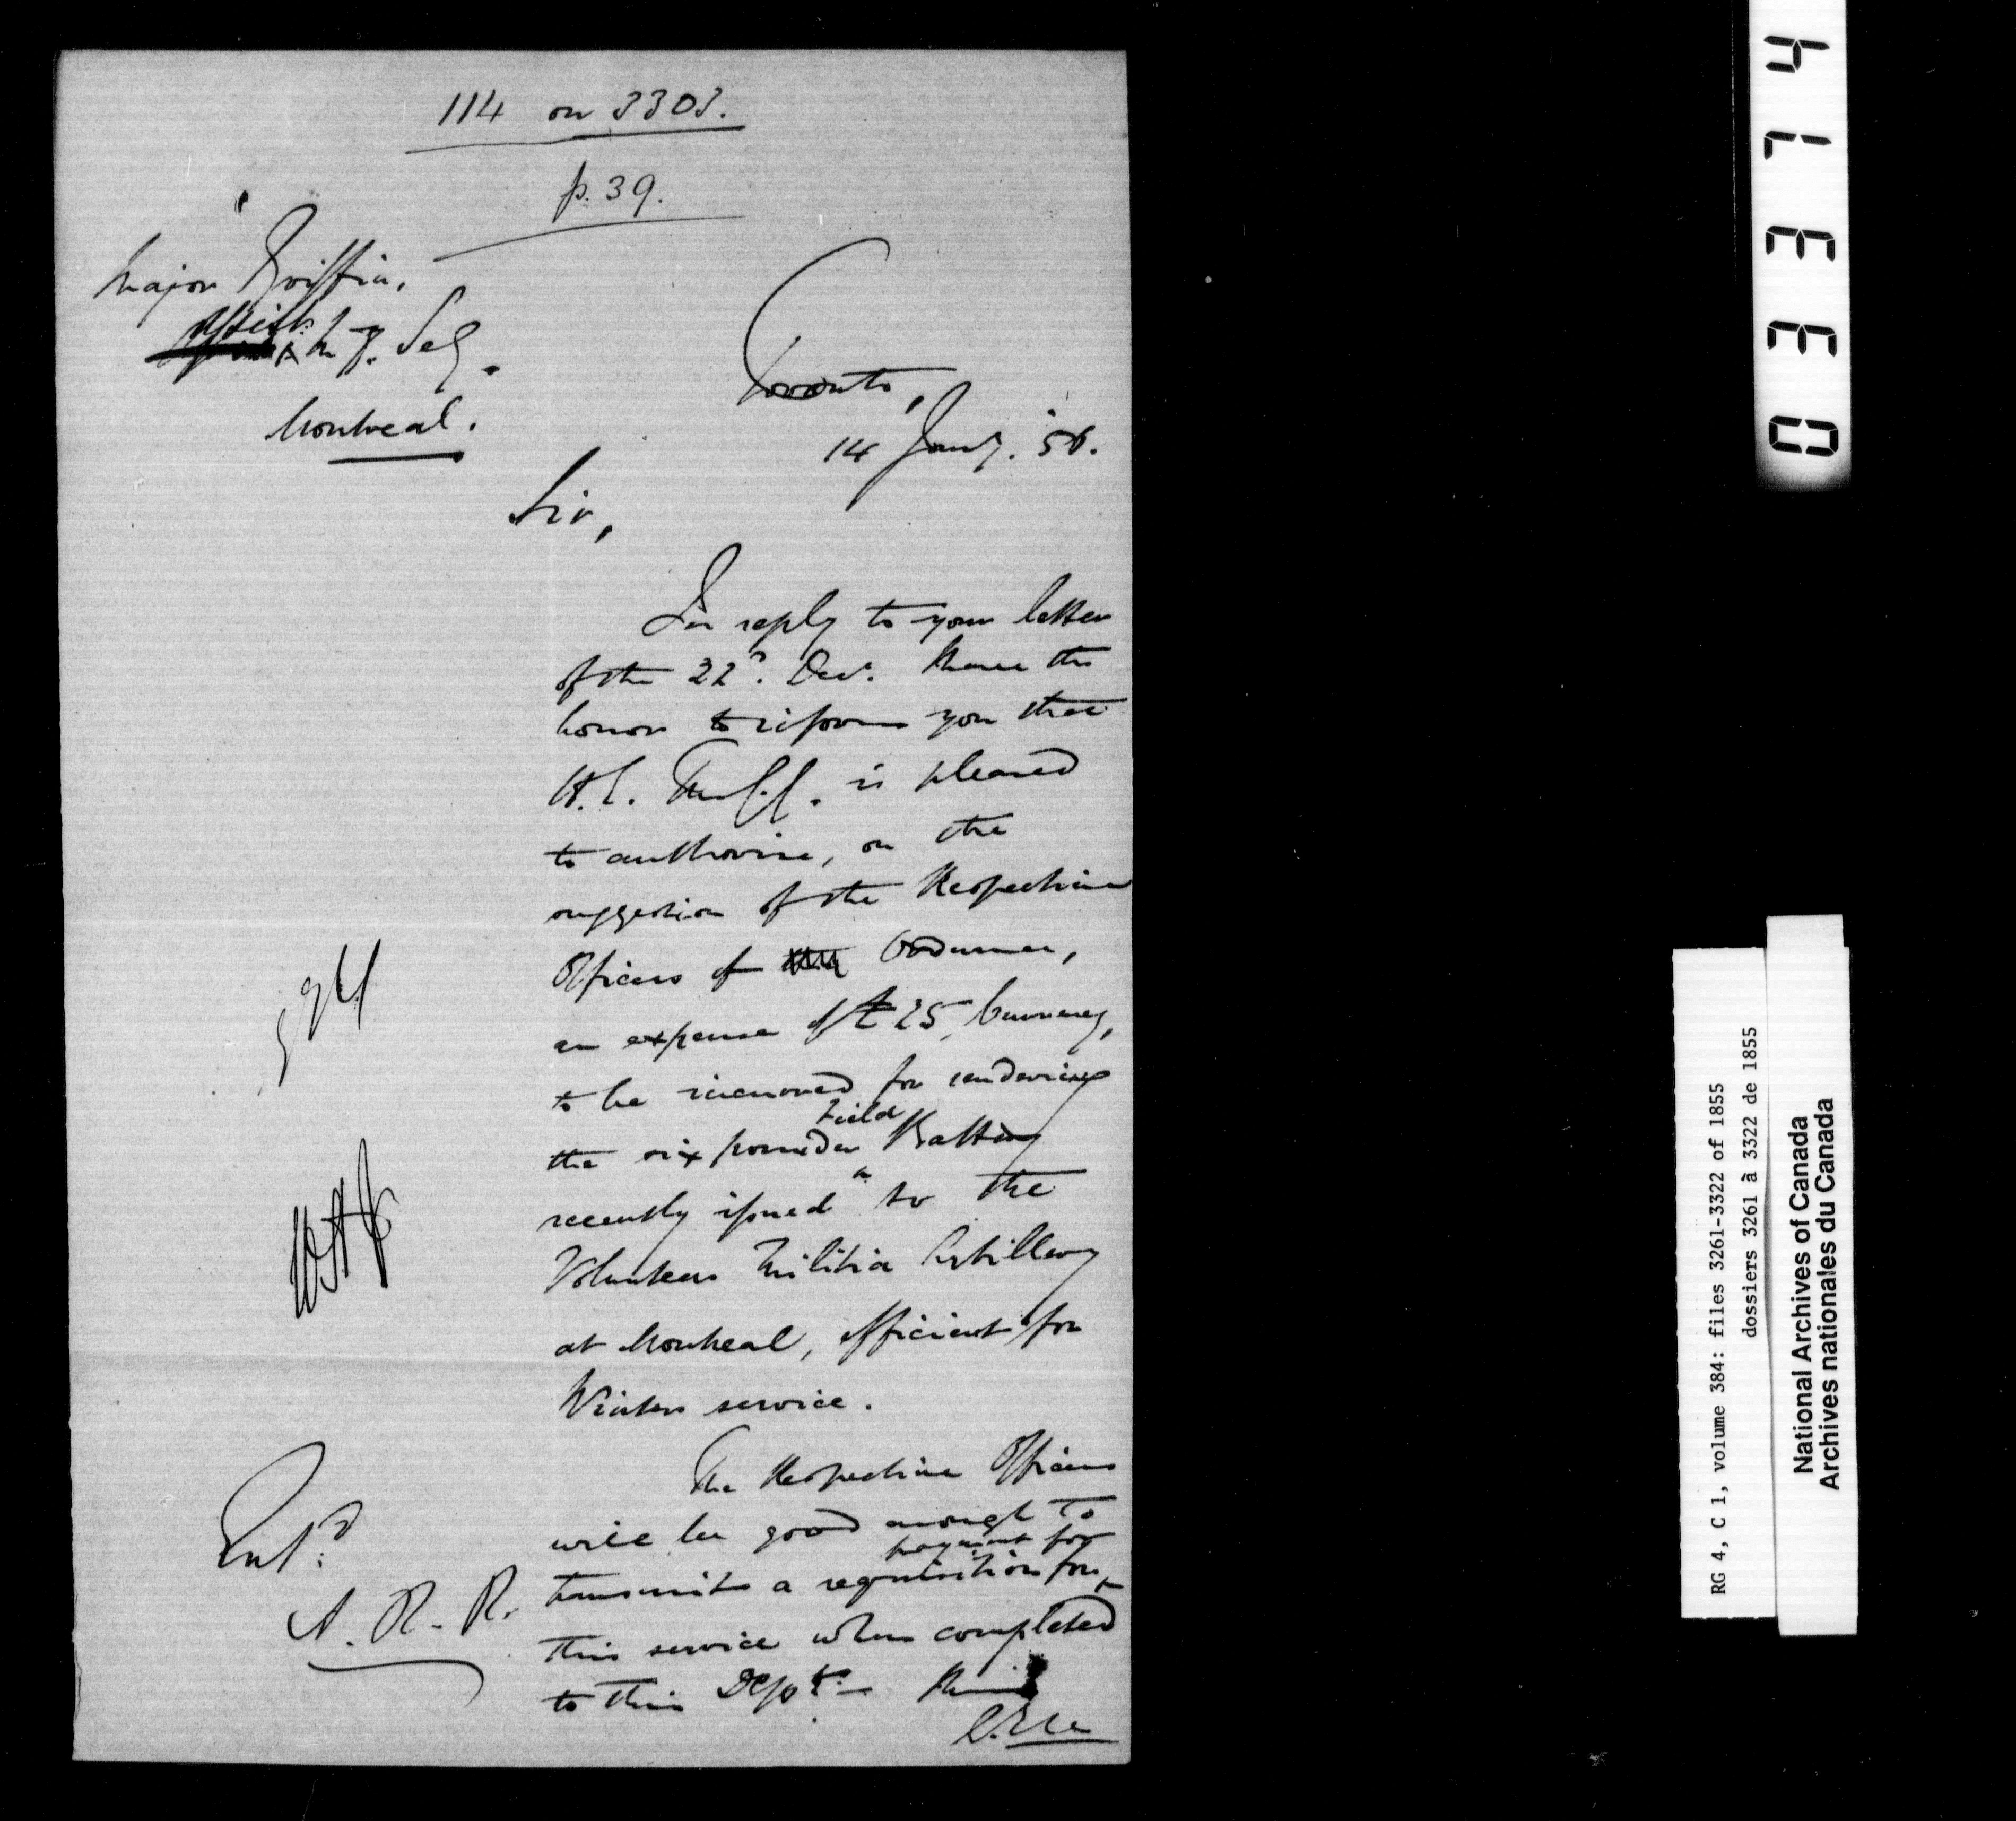 114 on 3303.
p. 39.
Major Griffin,
Assist: Secy.
Montreal.
Toronto,
14 Jany. 56.
Sir,
In reply to your letter
of the 22d. Dec. I have the
honor to inform you that
H.E. The G.G. is pleased
to authorise, on the
suggestion of the Respective
Officers of Ordnance,
an expense of £25, Currency,
to be incurred for rendering
the six pounder Field Battery
recently issued to the
Volunteer Militia Artillery
at Montreal, efficient for
Winter service.
The Respective Officers
will be good enough to
transmit a requisition for payment for
this service when completed
to this Dept. -
Entd.
A. R. R.
04133
RG 4, C 1, volume 384: files 3261-3322 of 1855
dossiers 3261 à 3322 de 1855
National Archives of Canada
Archives nationales du Canada